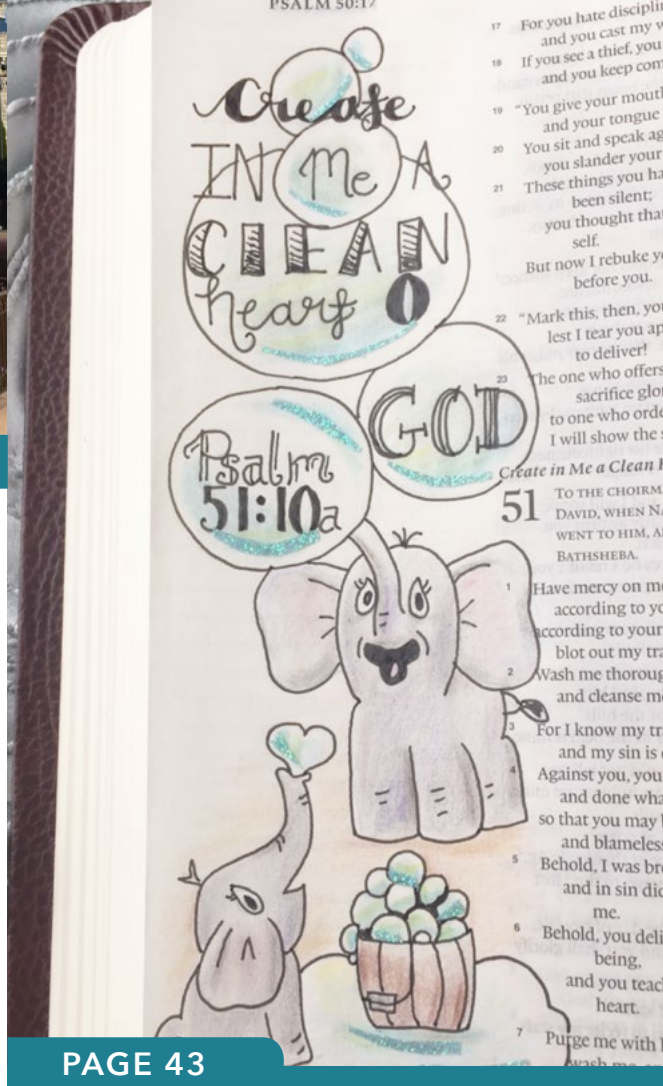 PSALM 50:17
Create
IN Me A
CLEAN
heart O
GOD
Psalm
51:10a
17 For you hate
and you cast my
18 If you see a thief, you
and you keep
19 "You give your
and your tongue
20 You sit and speak
you slander your
21 These things you
been silent;
you thought
self.
But now I rebuke
before you.
22 "Mark this, then,
lest I tear you
to deliver!
23 The one who offers
sacrifice
to one who
I will show the
Create in Me a Clean
51 TO THE
DAVID, WHEN
WENT TO HIM,
BATHSHEBA.
1 Have mercy on
according to
according to your
blot out my
2 Wash me
and cleanse
3 For I know my
and my sin is
4 Against you, you
and done
so that you may
and blameless
5 Behold, I was
and in sin did
me.
6 Behold, you
being,
and you
heart.
7 Purge me with
wash me
PAGE 43